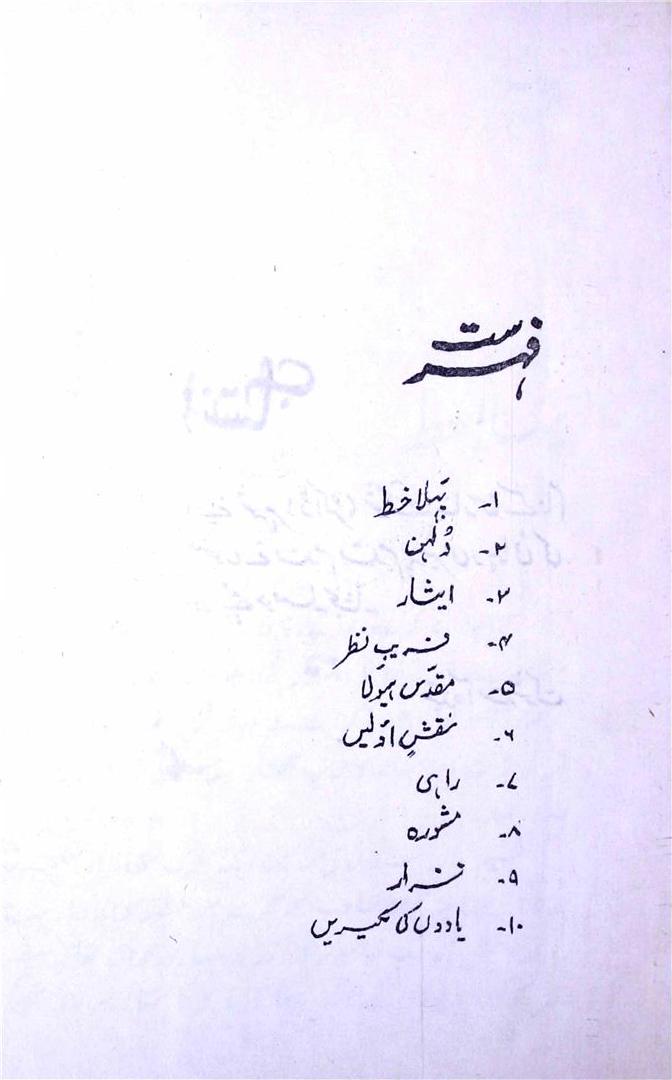 فہرست
۱۔ پہلا خط
۲۔ دُلہن
۳۔ ایثار
۴۔ فریبِ نظر
۵۔ مقدّس ہیولا
۶۔ نقشِ اوّلیں
۷۔ راہی
۸۔ مشورہ
۹۔ فرار
۱۰۔ یادوں کی لکیریں
انتساب